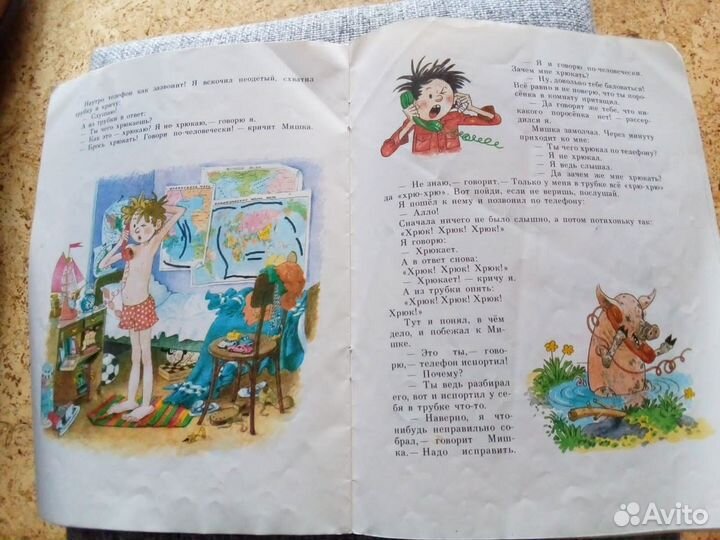 Наутро телефон как зазвонит! Я вскочил неодетый, схватил
трубку и кричу:
— Слушаю!
А из трубки в ответ:
— Ты чего хрюкаешь?
— Как это — хрюкаю? Я не хрюкаю,— говорю я.
— Брось хрюкать! Говори по-человечески! — кричит Мишка.
— Я и говорю по-человечески.
Зачем мне хрюкать?
— Ну, довольно тебе баловаться!
Всё равно я не поверю, что ты поро-
сёнка в комнату притащил.
— Да говорят же тебе, что ни-
какого поросёнка нет! — рассер-
дился я.
Мишка замолчал. Через минуту
приходит ко мне:
— Ты чего хрюкал по телефону?
— Я не хрюкал.
— Я ведь слышал.
— Да зачем же мне хрюкать?
— Не знаю,— говорит.— Только у меня в трубке всё «хрю-хрю»
да «хрю-хрю». Вот пойди, если не веришь, послушай.
Я пошёл к нему и позвонил по телефону:
— Алло!
Сначала ничего не было слышно, а потом потихоньку так:
«Хрюк! Хрюк! Хрюк!»
Я говорю:
— Хрюкает.
А в ответ снова:
«Хрюк! Хрюк! Хрюк!»
— Хрюкает! — кричу я.
А из трубки опять:
«Хрюк! Хрюк! Хрюк!
Хрюк!»
Тут я понял, в чём
дело, и побежал к Ми-
шке.
— Это ты,— гово-
рю,— телефон испортил!
— Почему?
— Ты ведь разбирал
его, вот и испортил у се-
бя в трубке что-то.
— Наверно, я что-
нибудь неправильно со-
брал,— говорит Миш-
ка.— Надо исправить.
Avito